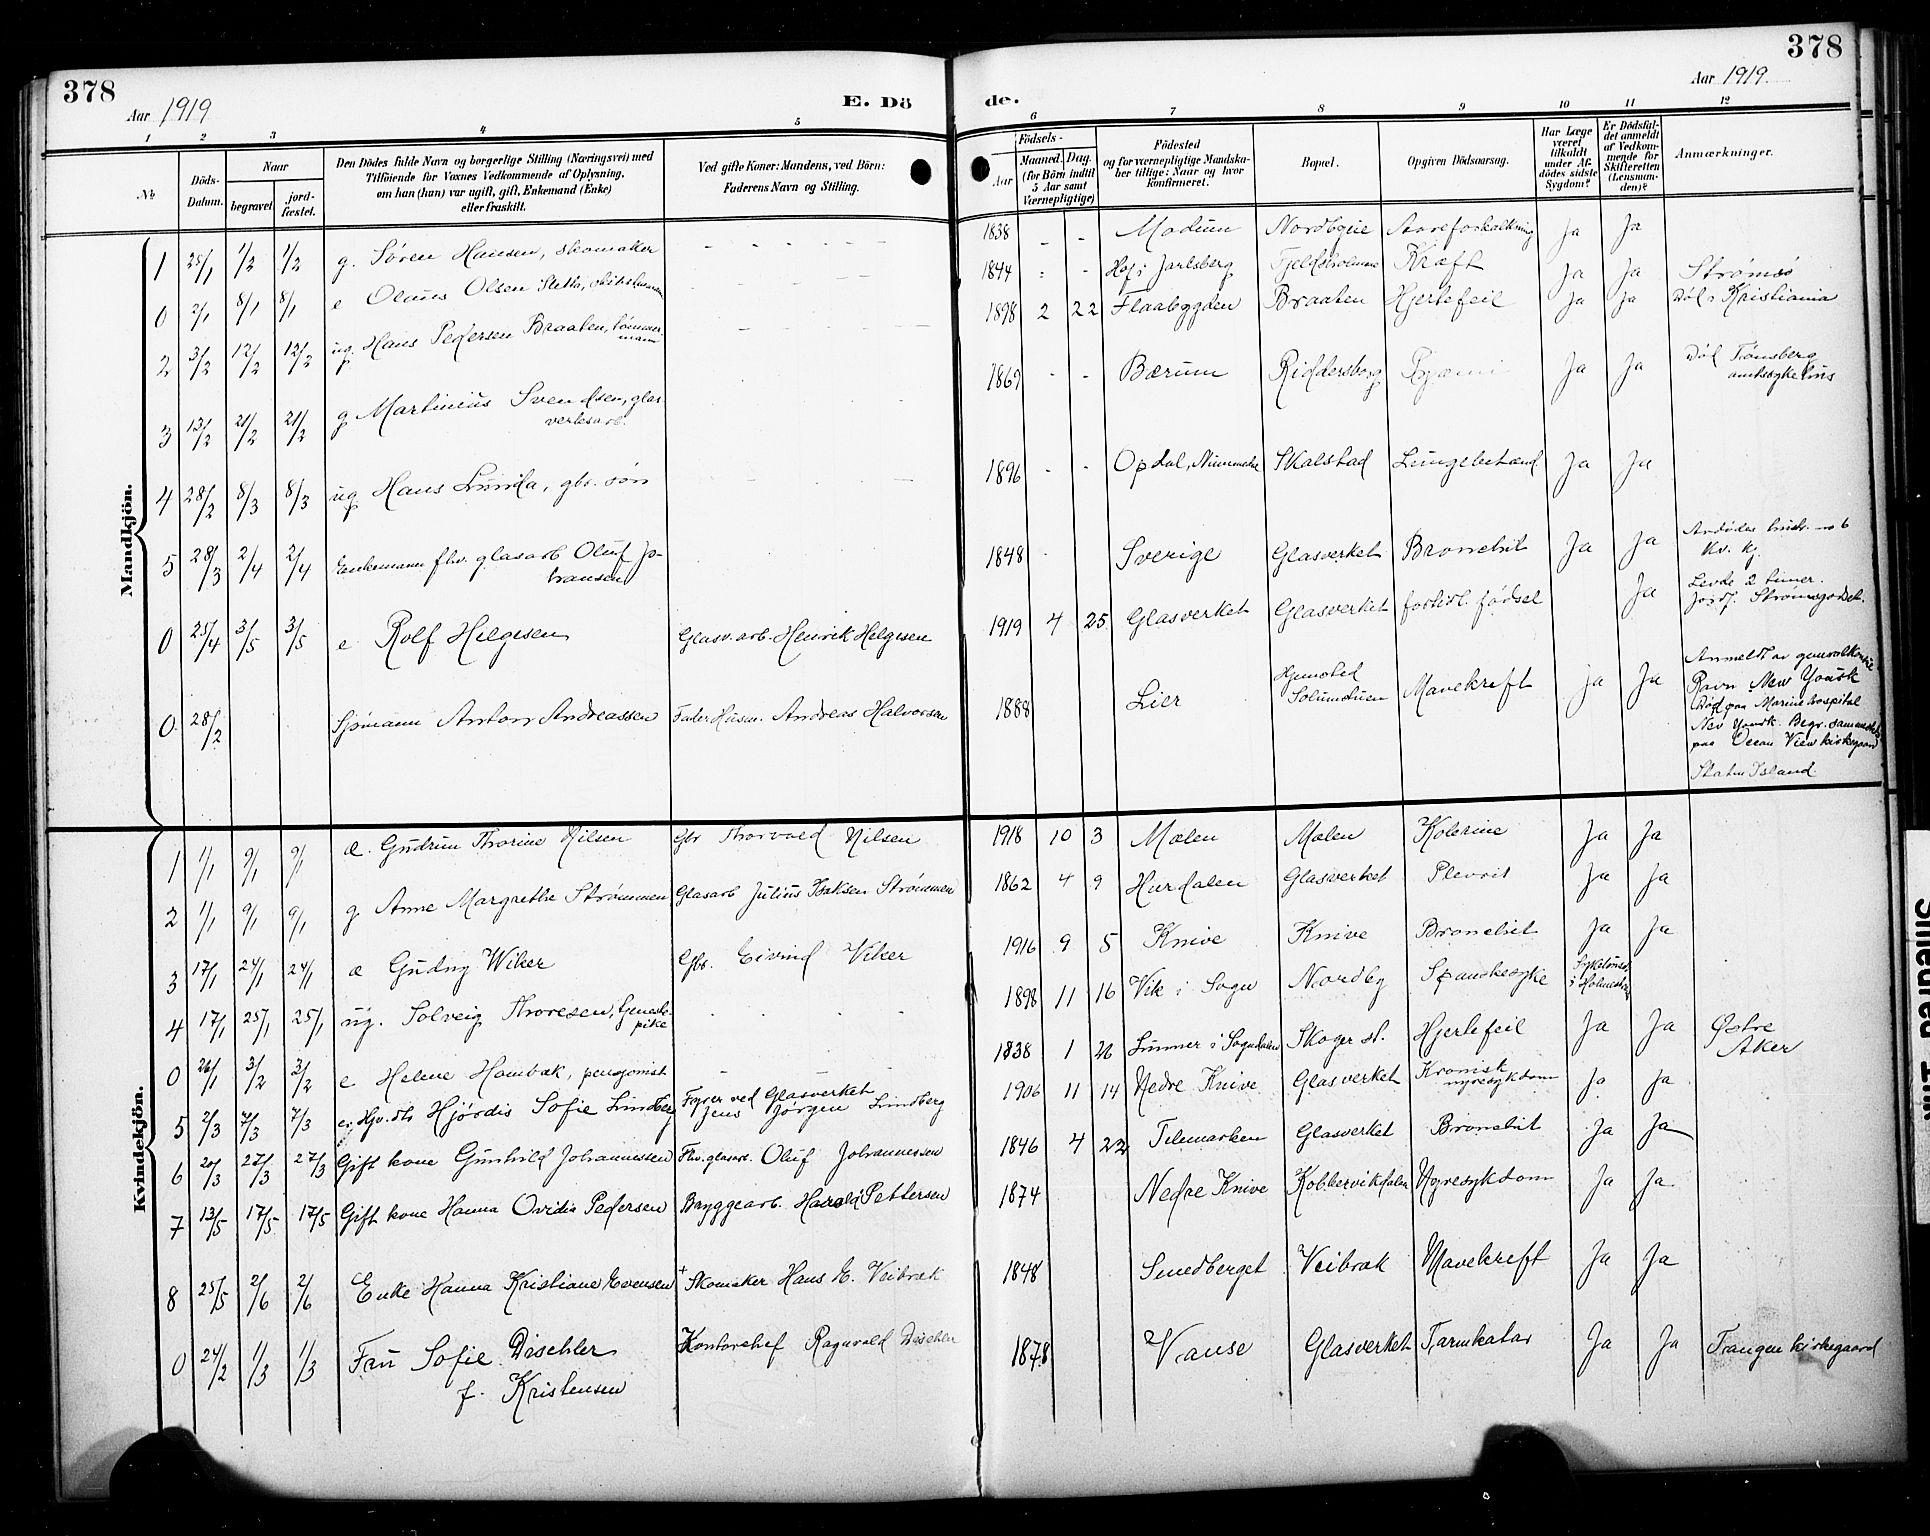 378
378
Aar 1919
E. Dö
de.
Aar 1919.
1 2 3 4 5 6 7 8 9 10 11 12
No
Döds-Datum.
Naar
begravet
jord-fæstet.
Den Dödes fulde Navn og borgerlige Stilling (Næringsvei) med
Tilföiende for Voxnes Vedkommende af Oplysning,
om han (hun) var ugift, gift, Enkemand (Enke)
eller fraskilt.
Ved gifte Koner: Mandens, ved Börn:
Faderens Navn og Stilling.
Födsels-
Aar
Maaned. Dag.
(for Börn indtil 5 Aar samt Værnepligtige)
Födested
og for værnepligtige Mandska-
ber tillige: Naar og hvor
konfirmeret.
Bopæl.
Opgiven Dödsaarsag.
Har Læge været tilkaldt under Af-dödes sidste Sygdom?
Er Dödsfal-det anmeldt af Vedkom-mende for Skifteretten (Lensman-den)?
Anmærkninger.
Mandkjön.
1 25/1 1/2 1/2 g. Søren Hansen, skomaker 1838 - - Modum Nordbyeie Aareforkalkning Ja Ja
0 2/1 8/1 8/1 e Olaus Olsen Sletta, 1844 - - Hof i Jarlsberg Fjeldsholmen Kræft Ja Ja Strømsø
2 3/2 12/2 12/2 ug. Hans Pedersen Braaten, tømmermann 1898 2 22 Flaabygden Braaten Hjertefeil Ja Ja Død i Kristiania
3 13/2 21/2 21/2 g Martinius Svendsen, glasverksarb. 1869 - - Bærum Riddersborg Ja Ja Død Tønsberg amtssykehus
4 28/2 8/3 8/3 ug Hans Lunda, gbr. søn 1896 - - Opdal, Nummedal Skalstad Lungebetænd Ja Ja
5 28/3 2/4 2/4 Enkemann fhv. glasarb Oluf Johansen 1848 - Sverige Glasverket Bronchit Ja Ja Avdødes hustr. no 6 Kv. kj.
0 25/4 3/5 3/5 e Rolf Helgesen Glasv.arb. Henrik Helgesen 1919 4 25 Glasverket Glasverket fortidl. fødsel Ja Levde 2 timer. Jordf. Strømsgodset.
0 28/2 Sjømann Anton Andreassen Fader: Husm. Andreas Halvorsen 1888 Lier Hjemsted Solumstuen Mavekreft Ja Ja Anmeldt av generalkonsul
Ravn New Yorsk
Død paa Marine hospital
New Yorsk. Begr. sammesteds
paa Ocean View kirkegaard
Staten Island
Kvindekjön.
1 1/1 9/1 9/1 æ. Gudrun Thorine Nilsen Gbr Thorvald Nilsen 1918 10 3 Mælen Mælen Kolerine Ja Ja
2 1/1 9/1 9/1 g Anne Margrethe Strømmen Glasarb Julius Isaksen Strømmen 1862 4 9 Hurdalen Glasverket Plevrit Ja Ja
3 17/1 24/1 24/1 æ Gudny Wiker Gbr. Eivind Viker 1916 9 5 Knive Knive Bronchit Ja Ja
4 17/1 25/1 25/1 ug. Solveig Thoresen, tjenestepike 1898 11 16 Vik i Sogn Nordby Spanskesyke
0 26/1 3/2 3/2 e Helene Hambæk, pensjonist 1838 1 26 Lunner i Sognedalen Skoger st. Hjertefeil Ja Ja Østre Aker
5 2/3 7/3 7/3 Hjv. dt. Hjørdis Sofie Lundberg Fyrer ved Glasverket Jens Jørgen Lundberg 1906 11 14 Nedre Knive Glasverket Kronisk nyresykdom Ja Ja
6 20/3 27/3 27/3 Gift kone Gunhild Johannessen Fhv. glasarb. Oluf Johannessen 1846 4 22 Telemarken Glasverket Bronchit Ja Ja
7 13/5 17/5 17/5 Gift kone Hanna Ovidia Pedersen Bryggearb. Harald Pettersen 1874 Nedre Knive Kobbervikdalen Nyresykdom Ja Ja
8 25/5 2/6 2/6 Enke Hanna Kristiane Evensen + Skomaker Hans E. Veibræk 1848 Smedberget Veibræk Mavekreft Ja Ja
0 24/2 1/3 1/3 Fru Sofie Dischler f. Kristensen Kontorchef Ragnvald Dischler 1878 Vanse Glasverket Tarmkatar Ja Ja Tangen kirkegaard